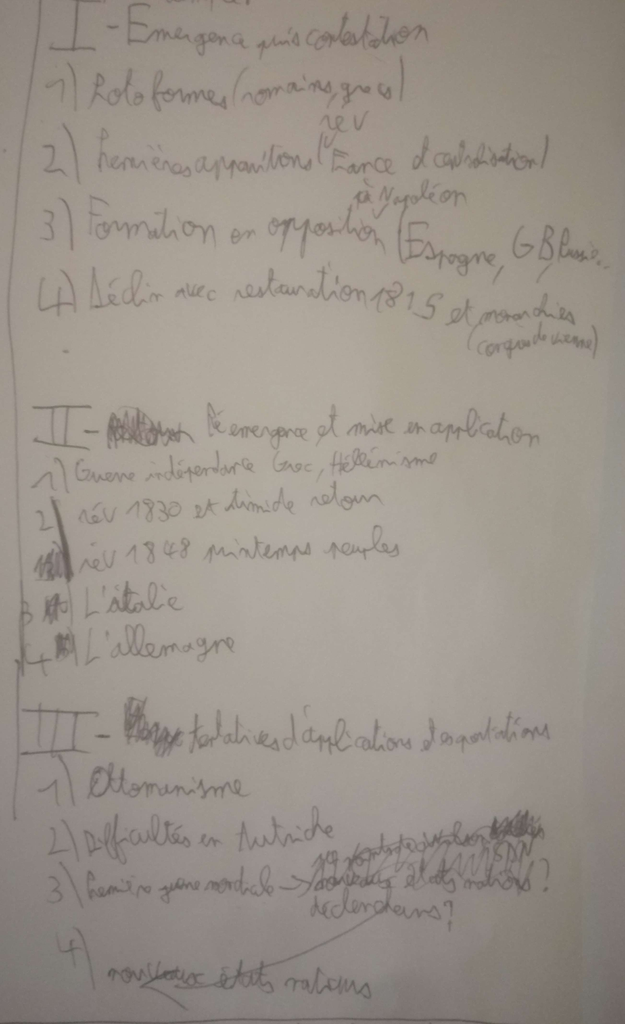 I - Emergence puis contestation
1) Protoformes (romains, grecs)
rev
2) Premières apparitions (France et centralisation)
à Napoléon
3) Formation en opposition (Espagne, GB, Russie..
4) Déclin avec restauration 1815 et monarchies
(congrès de vienne)
II - Réemergence et mise en application
1) Guerre indépendance Grec, Hellénisme
2) rév 1830 et timide retour
rév 1848 printemps peuples
3) L'italie
4) L'allemagne
III - tentatives d'applications et exportations
1) Ottomanisme
2) Difficultés en Autriche
3) Première guerre mondiale → états nations?
déclencheurs?
4)
nouveaux états nations